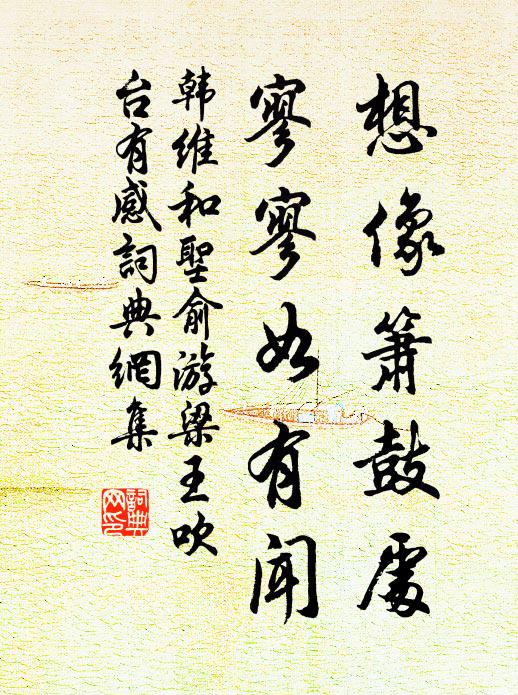 想像箫鼓處
寥寥如有闻
韩維和聖俞游梁王吹
台有感詞典網集
詞典網印